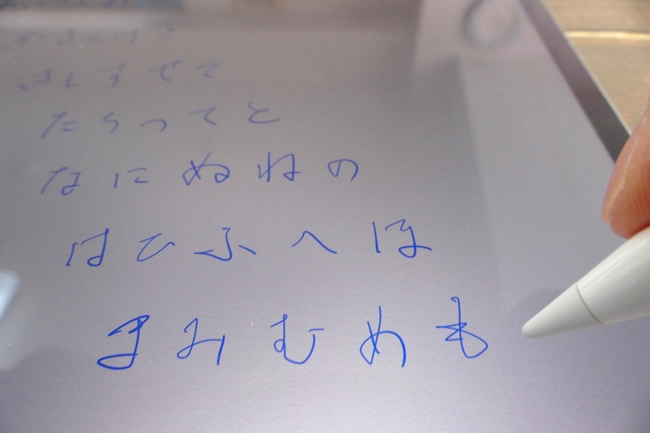 さしすせそ
たちつてと
なにぬねの
はひふへほ
まみむめも